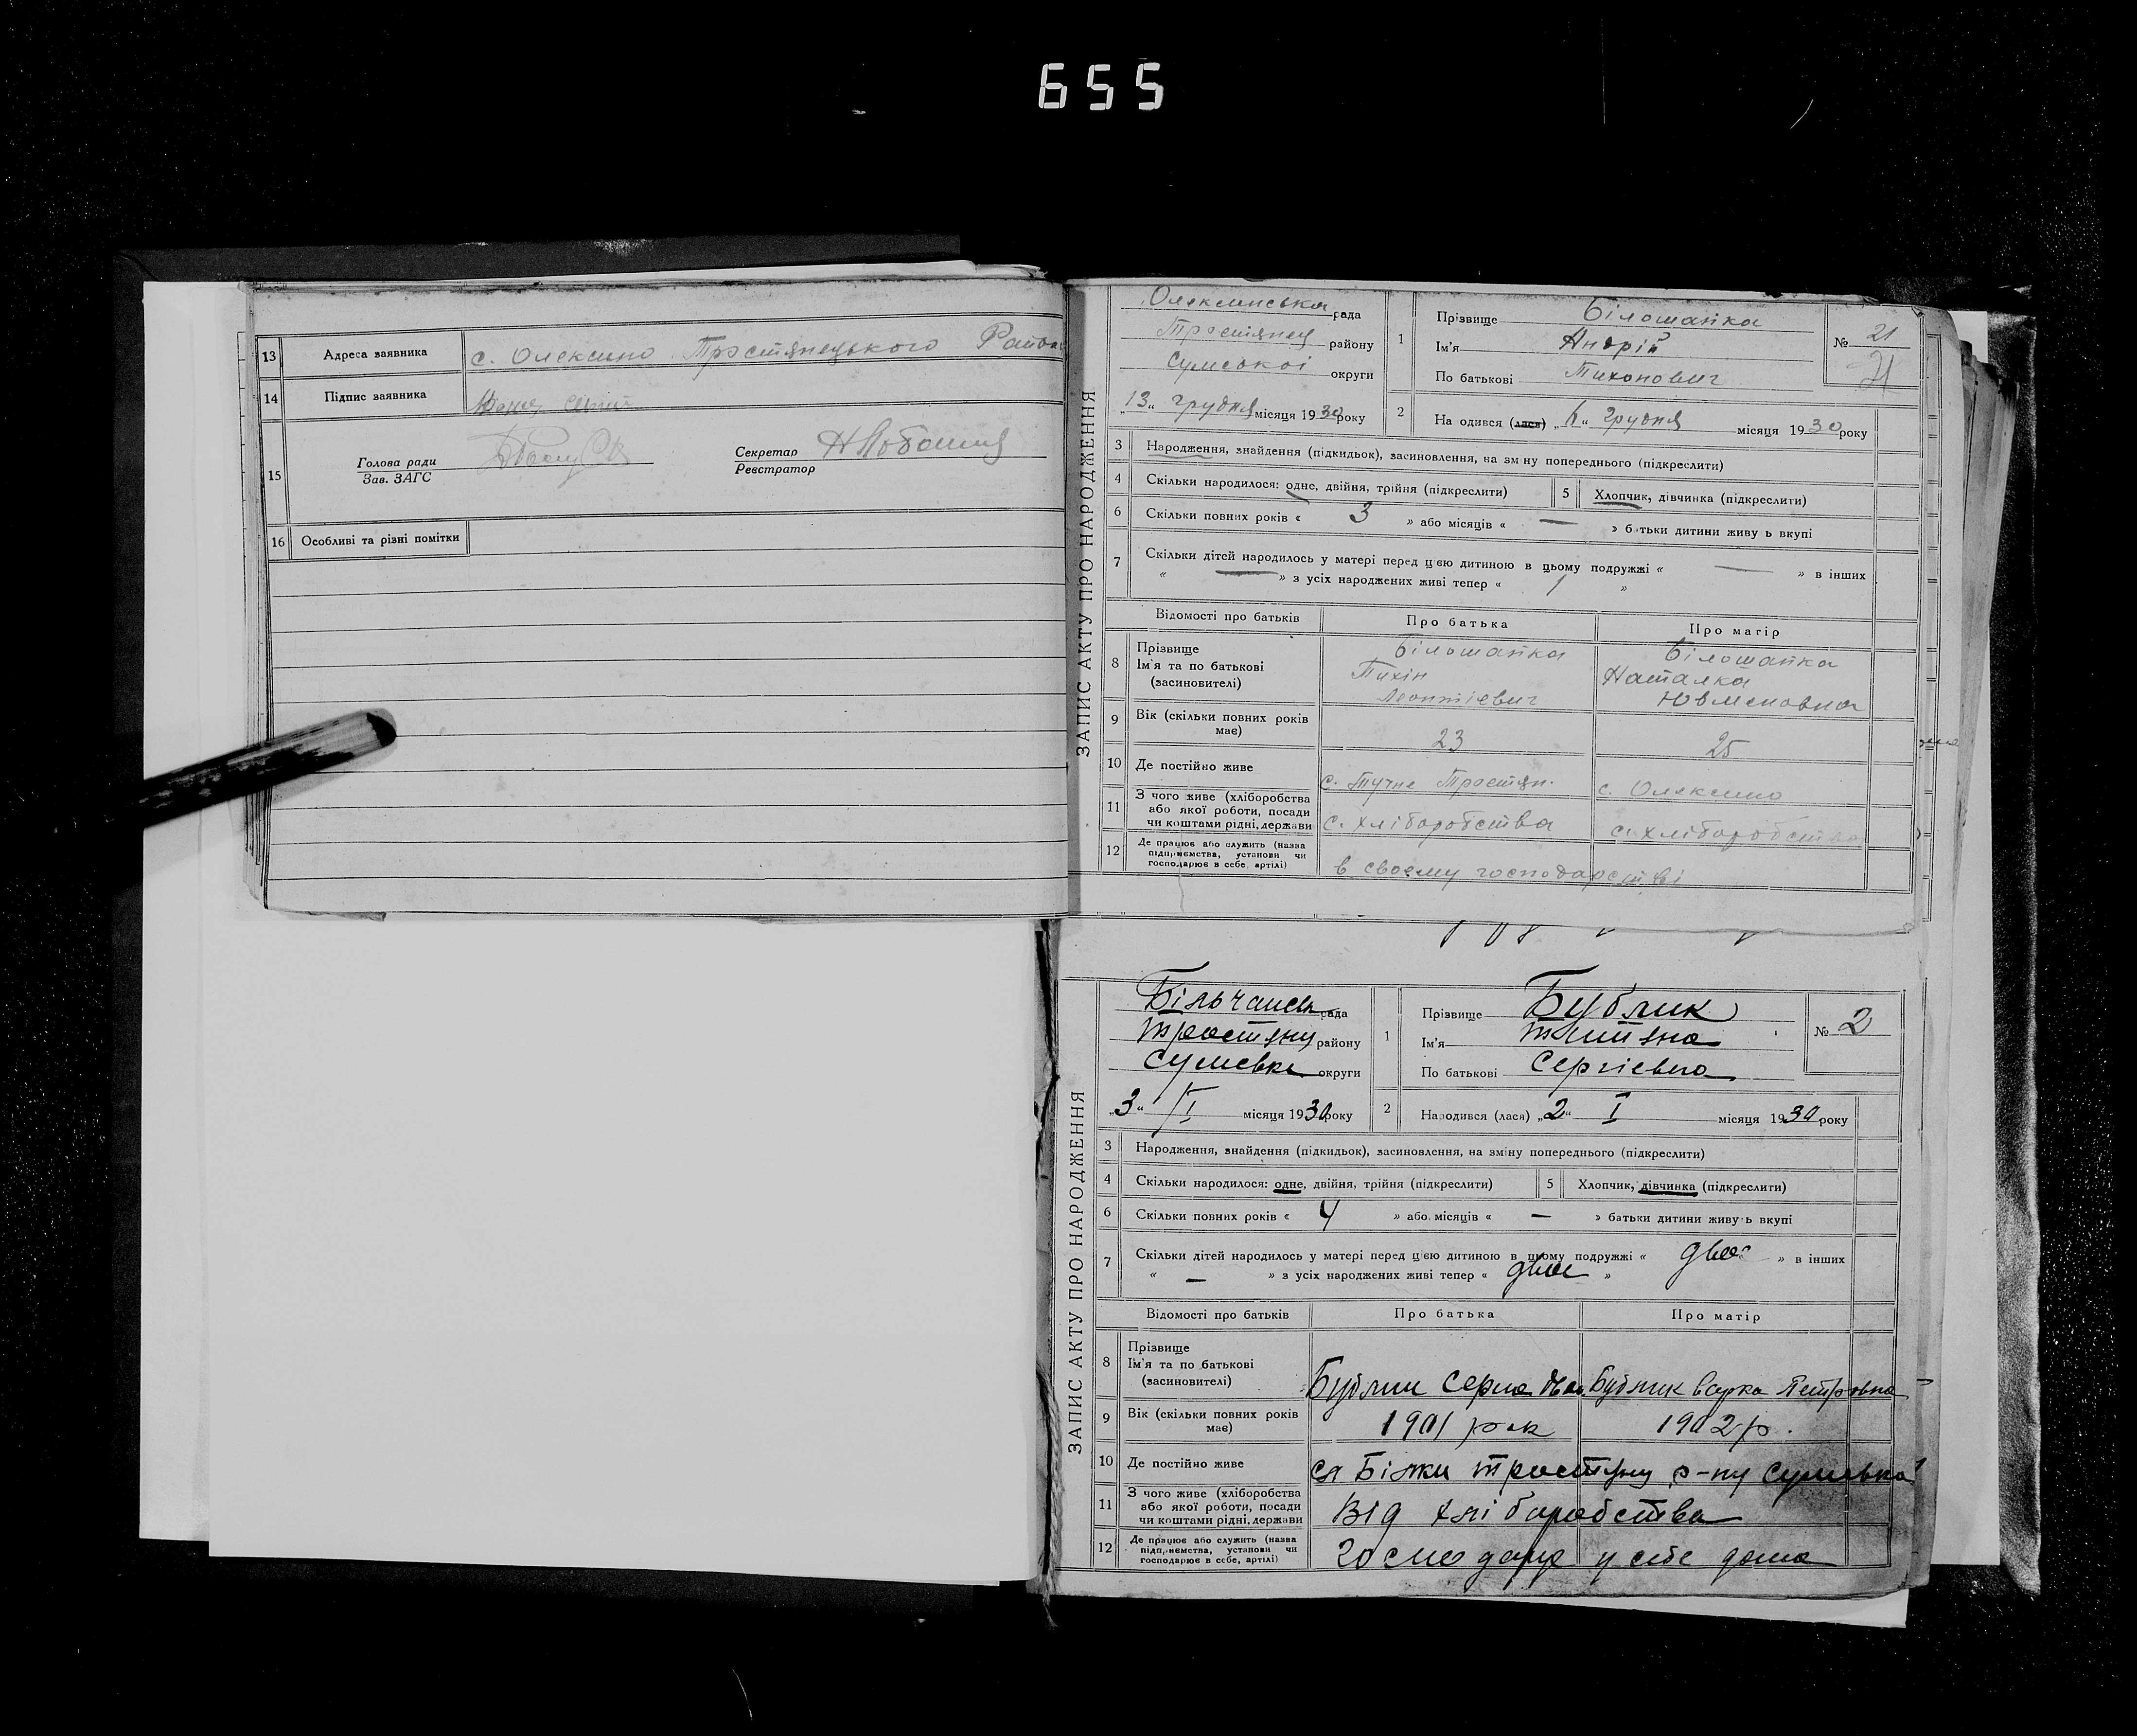 655
13 Адреса заявника с. Олексино Тростянецького Району
14 Підпис заявника
15 Голова ради
Зав. ЗАГС
Секретар
Реєстратор
16 Особливі та різні помітки
ЗАПИС АКТУ ПРО НАРОДЖЕННЯ
Олексинська рада
Тростянец району
Сумської округи
„13“ грудня місяця 1930 року
1 Прізвище Білошапка
Ім'я Андрій
По батькові Тихонович
№ 21
21
2 На одився (лася) „6“ Грудня місяця 1930 року
3 Народження, знайдення (підкидьок), засиновлення, на зміну попереднього (підкреслити)
4 Скільки народилося: одне, двійня, трійня (підкреслити) 5 Хлопчик, дівчинка (підкреслити)
6 Скільки повних років « 3 » або місяців « — » батьки дитини живу ь вкупі
7 Скільки дітей народилось у матері перед цією дитиною в цьому подружжі « — » в інших
« — » з усіх народжених живі тепер « 1 »
Відомості про батьків Про батька Про матір
8 Прізвище Білошапка Білошапка
Ім'я та по батькові Тихін Наталка
(засиновителі) Леонтієвич
9 Вік (скільки повних років має) 23 25
10 Де постійно живе с. Тучне Тростян. с. Олексино
11 З чого живе (хліборобства або якої роботи, посади чи коштами рідні, держави с. хліборобства с. хліборобства
12 Де працює або служить (назва підприємства, установи чи господарює в себе, артілі) в своєму господарстві
ЗАПИС АКТУ ПРО НАРОДЖЕННЯ
Більчанськ рада
Тростянц району
Сумська округи
„3“ I місяця 1930 року
1 Прізвище Бублик
Ім'я Тетяна
По батькові Сергієвна
№ 2
2 Народився (лася) „2“ I місяця 1930 року
3 Народження, знайдення (підкидьок), засиновлення, на зміну попереднього (підкреслити)
4 Скільки народилося: одне, двійня, трійня (підкреслити) 5 Хлопчик, дівчинка (підкреслити)
6 Скільки повних років « 4 » або місяців « — » батьки дитини живу ь вкупі
7 Скільки дітей народилось у матері перед цією дитиною в цьому подружжі « двоє » в інших
« — » з усіх народжених живі тепер « двоє »
Відомості про батьків Про батька Про матір
8 Прізвище
Ім'я та по батькові
(засиновителі) Бублик Сергій Бублик Варка Петровна
9 Вік (скільки повних років має) 1901 рок 1902 р.
10 Де постійно живе сл Білки Тростянц р-ну Сумська
11 З чого живе (хліборобства або якої роботи, посади чи коштами рідні, держави Від хліборобства
12 Де працює або служить (назва підприємства, установи чи господарює в себе, артілі) господарує у себе дома